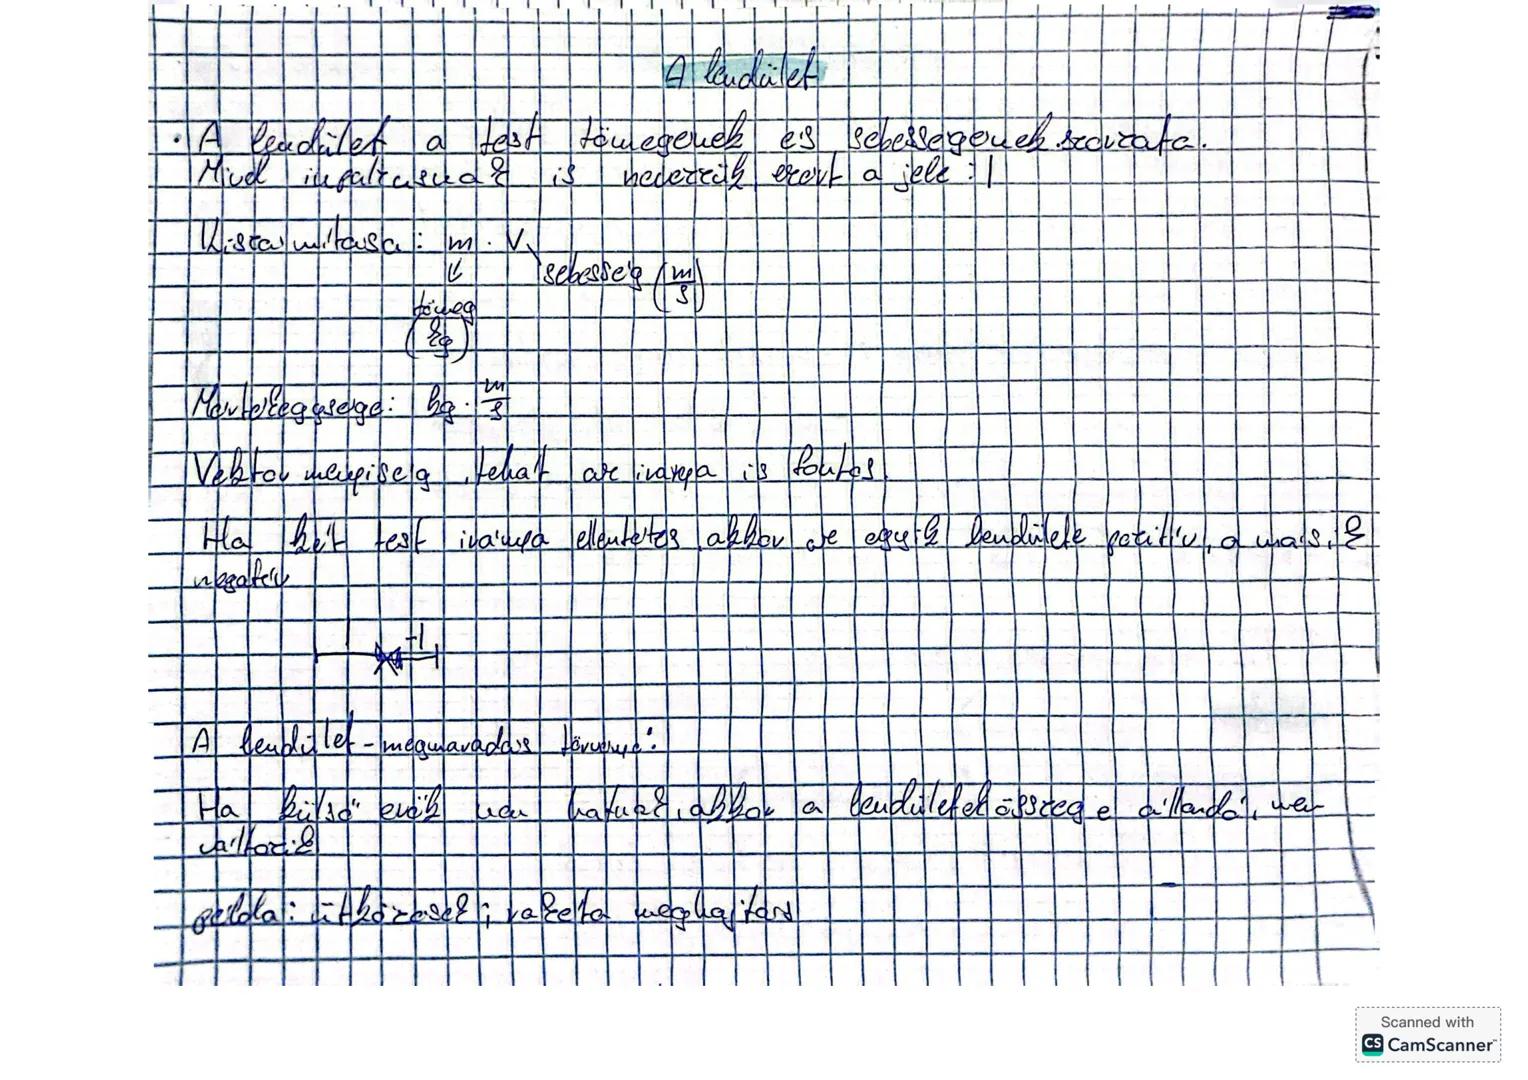 A lendület
· A lendület a test tömegének és sebességének szorzata.
Mivel impulzusnak is nevezzük ezért a jele: I
Kiszámítása: m · v
sebesség (m/s)
tömeg
(kg)
Mértékegysége: kg · m/s
Vektor mennyiség, tehát az iránya is fontos.
Ha két test iránya ellentétes, akkor az egyik lendülete pozitív, a másik
negatív
-I
A lendület-megmaradás törvénye:
Ha külső erők nem hatnak, akkor a lendületek összege állandó, nem
változik
példa: ütközések; rakéta meghajtás
Scanned with
CS CamScanner